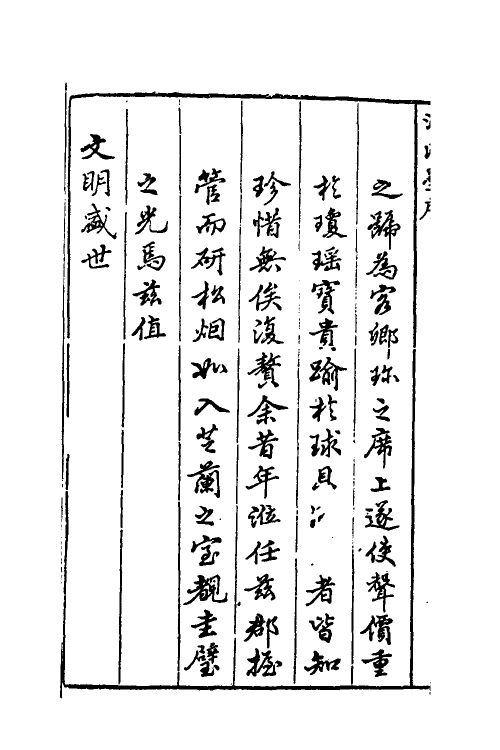 之歸為客卿珍之席上遂使聲價重
於瓊瑶寶貴踰於球貝 者皆知
珍惜無俟復贅余昔年涖任茲郡握
管而研松烟如入芝蘭之室覩圭璧
之光焉茲值
文明盛世